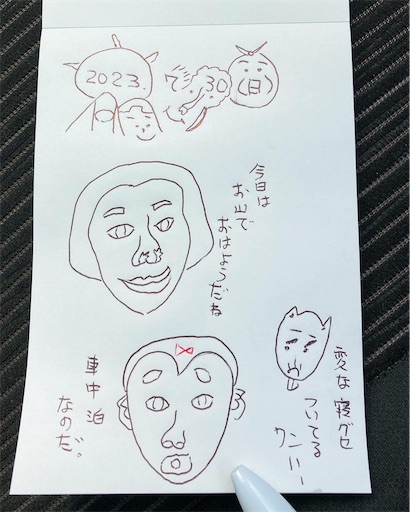 2023.
7.30
(日)
今日は
お山で
おはようだね
変な寝グセ
ついてる
車中泊
なのだ。